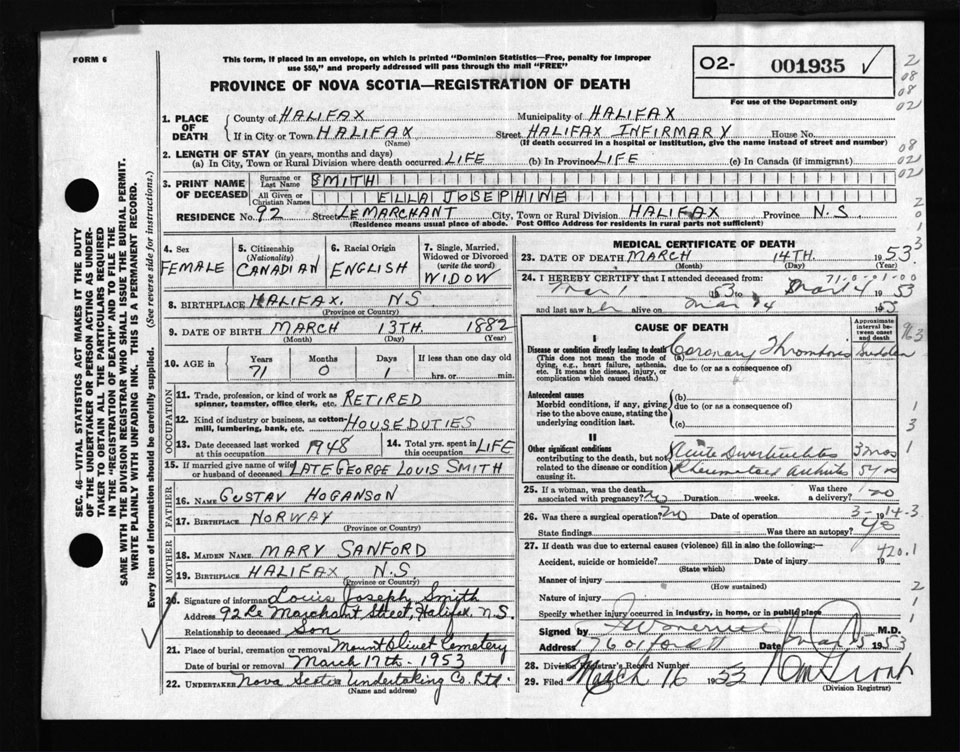 FORM 6
This form, if placed in an envelope, on which is printed "Dominion Statistics—Free, penalty for improper
use $50," and properly addressed will pass through the mail "FREE"
O2- 001935 ✓
For use of the Department only
PROVINCE OF NOVA SCOTIA—REGISTRATION OF DEATH
2
08
08
02
08
02
02
2
0
1
3
SEC. 46—VITAL STATISTICS ACT MAKES IT THE DUTY
OF THE UNDERTAKER OR PERSON ACTING AS UNDER-
TAKER TO OBTAIN ALL THE PARTICULARS REQUIRED
IN THE "REGISTRATION OF DEATH" AND TO FILE THE
SAME WITH THE DIVISION REGISTRAR WHO SHALL ISSUE THE BURIAL PERMIT.
WRITE PLAINLY WITH UNFADING INK. THIS IS A PERMANENT RECORD.
Every item of information should be carefully supplied. (See reverse side for instructions.)
1. PLACE OF DEATH
County of HALIFAX Municipality of HALIFAX
If in City or Town HALIFAX Street HALIFAX INFIRMARY House No.
(Name) (If death occurred in a hospital or institution, give the name instead of street and number)
2. LENGTH OF STAY (in years, months and days)
(a) In City, Town or Rural Division where death occurred LIFE (b) In Province LIFE (c) In Canada (if immigrant)
3. PRINT NAME OF DECEASED
Surname or Last Name SMITH
All Given or Christian Names ELLA JOSEPHINE
RESIDENCE No. 92 Street LEMARCHANT City, Town or Rural Division HALIFAX Province N.S
(Residence means usual place of abode. Post Office Address for residents in rural parts not sufficient)
4. Sex
FEMALE
5. Citizenship
(Nationality)
CANADIAN
6. Racial Origin
ENGLISH
7. Single, Married,
Widowed or Divorced
(write the word)
WIDOW
8. BIRTHPLACE HALIFAX. N.S
(Province or Country)
9. DATE OF BIRTH MARCH 13TH. 1882
(Month) (Day) (Year)
10. AGE in
Years Months Days If less than one day old
71 0 1 hrs. or min.
OCCUPATION
11. Trade, profession, or kind of work as
spinner, teamster, office clerk, etc. RETIRED
12. Kind of industry or business, as cotton-
mill, lumbering, bank, etc. HOUSE DUTIES
13. Date deceased last worked
at this occupation 1948
14. Total yrs. spent in
this occupation LIFE
15. If married give name of wife
or husband of deceased LATE GEORGE LOUIS SMITH
FATHER
16. NAME GUSTAV HOGANSON
17. BIRTHPLACE NORWAY
(Province or Country)
MOTHER
18. MAIDEN NAME MARY SANFORD
19. BIRTHPLACE HALIFAX N.S
(Province or Country)
20. Signature of informant Louis Joseph Smith
Address 92 Le Marchant Street, Halifax. N.S.
Relationship to deceased Son
21. Place of burial, cremation or removal Mount Olivet Cemetery
Date of burial or removal March 17th - 1953
22. UNDERTAKER Nova Scotia Undertaking Co. Ltd.
(Name and address)
MEDICAL CERTIFICATE OF DEATH
23. DATE OF DEATH MARCH 14TH. 1953
(Month) (Day) (Year)
71-0-01-00
24. I HEREBY CERTIFY that I attended deceased from:
Mar 1 1953 to Mar 14 1953
and last saw h er alive on Mar 14 1953
CAUSE OF DEATH
Approximate
interval be-
tween onset
and death
I
Disease or condition directly leading to death
(This does not mean the mode of
dying, e.g., heart failure, asthenia,
etc. It means the disease, injury, or
complication which caused death.)
(a) Coronary Thrombosis Sudden
due to (or as a consequence of)
Antecedent causes
Morbid conditions, if any, giving
rise to the above cause, stating the
underlying condition last.
(b)
due to (or as a consequence of)
(c)
II
Other significant conditions
contributing to the death, but not
related to the disease or condition
causing it.
Acute Diverticulitis 3 mos
Rheumatoid Arthritis 5 yrs
963
1
1
3
25. If a woman, was the death
associated with pregnancy? No Duration weeks. Was there a delivery? No
26. Was there a surgical operation? No Date of operation 3-14-3
State findings Was there an autopsy?
27. If death was due to external causes (violence) fill in also the following:—
420.1
Accident, suicide or homicide? Date of injury 19
(State which)
Manner of injury
(How sustained)
Nature of injury
Specify whether injury occurred in industry, in home, or in public place
2
1
1
Signed by M.D.
Address Date 1953
28. Division Registrar's Record Number
29. Filed March 16 1953
(Division Registrar)